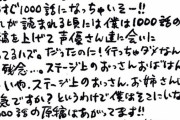 すぐ1000話になっちゃいそー!!
れが読まれる頃には僕は1000話の
稿を上げて声優さん達に会いに
ってるハズ。だったのに!行っちゃダメなん
残念…。ステージ上のおっさんおばさん
いや、ステージ上のおっさん、お姉さん
気ですか?というわけで僕はそこにいな
00話の原稿はあがってます!!